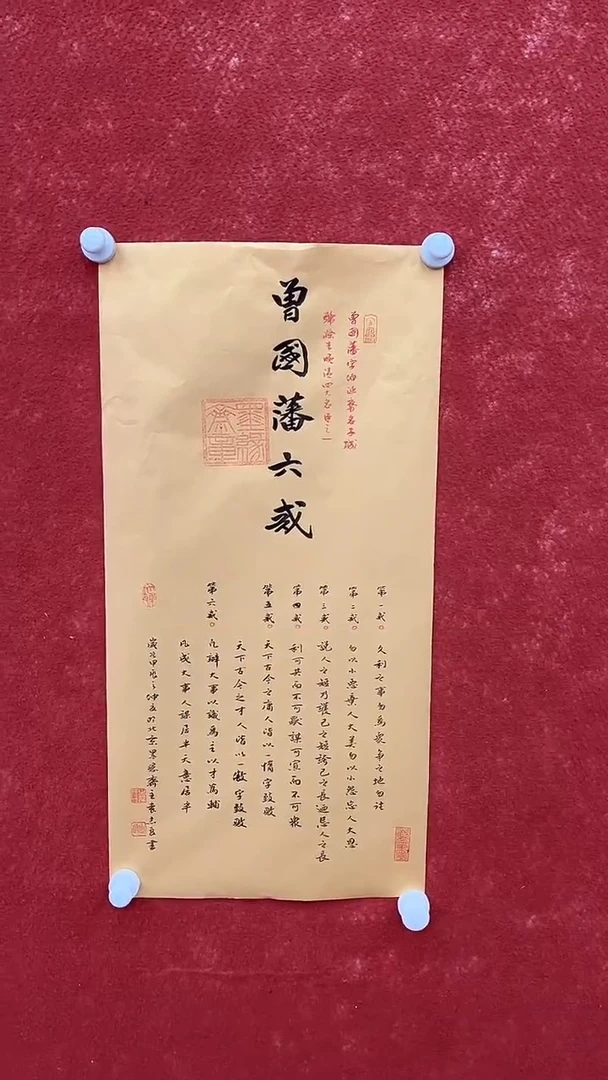 曾國藩六戒
曾國藩字伯涵號名子城
號滌生晚清四大名臣之一
第一戒 久利之事勿為衆爭之地勿往
第二戒 勿以小惡棄人大美勿以小怨忘人大恩
第三戒 說人之短乃護己之短誇己之長迺忌人之長
第四戒 利可共而不可獨謀可寡而不可衆
第五戒 天下古今之庸人皆以一惰字致敗
天下古今之才人皆以一傲字致敗
第六戒 凡辦大事以識為主以才為輔
凡成大事人謀居半天意居半
歲次甲辰之仲 於北京墨緣齋主 書